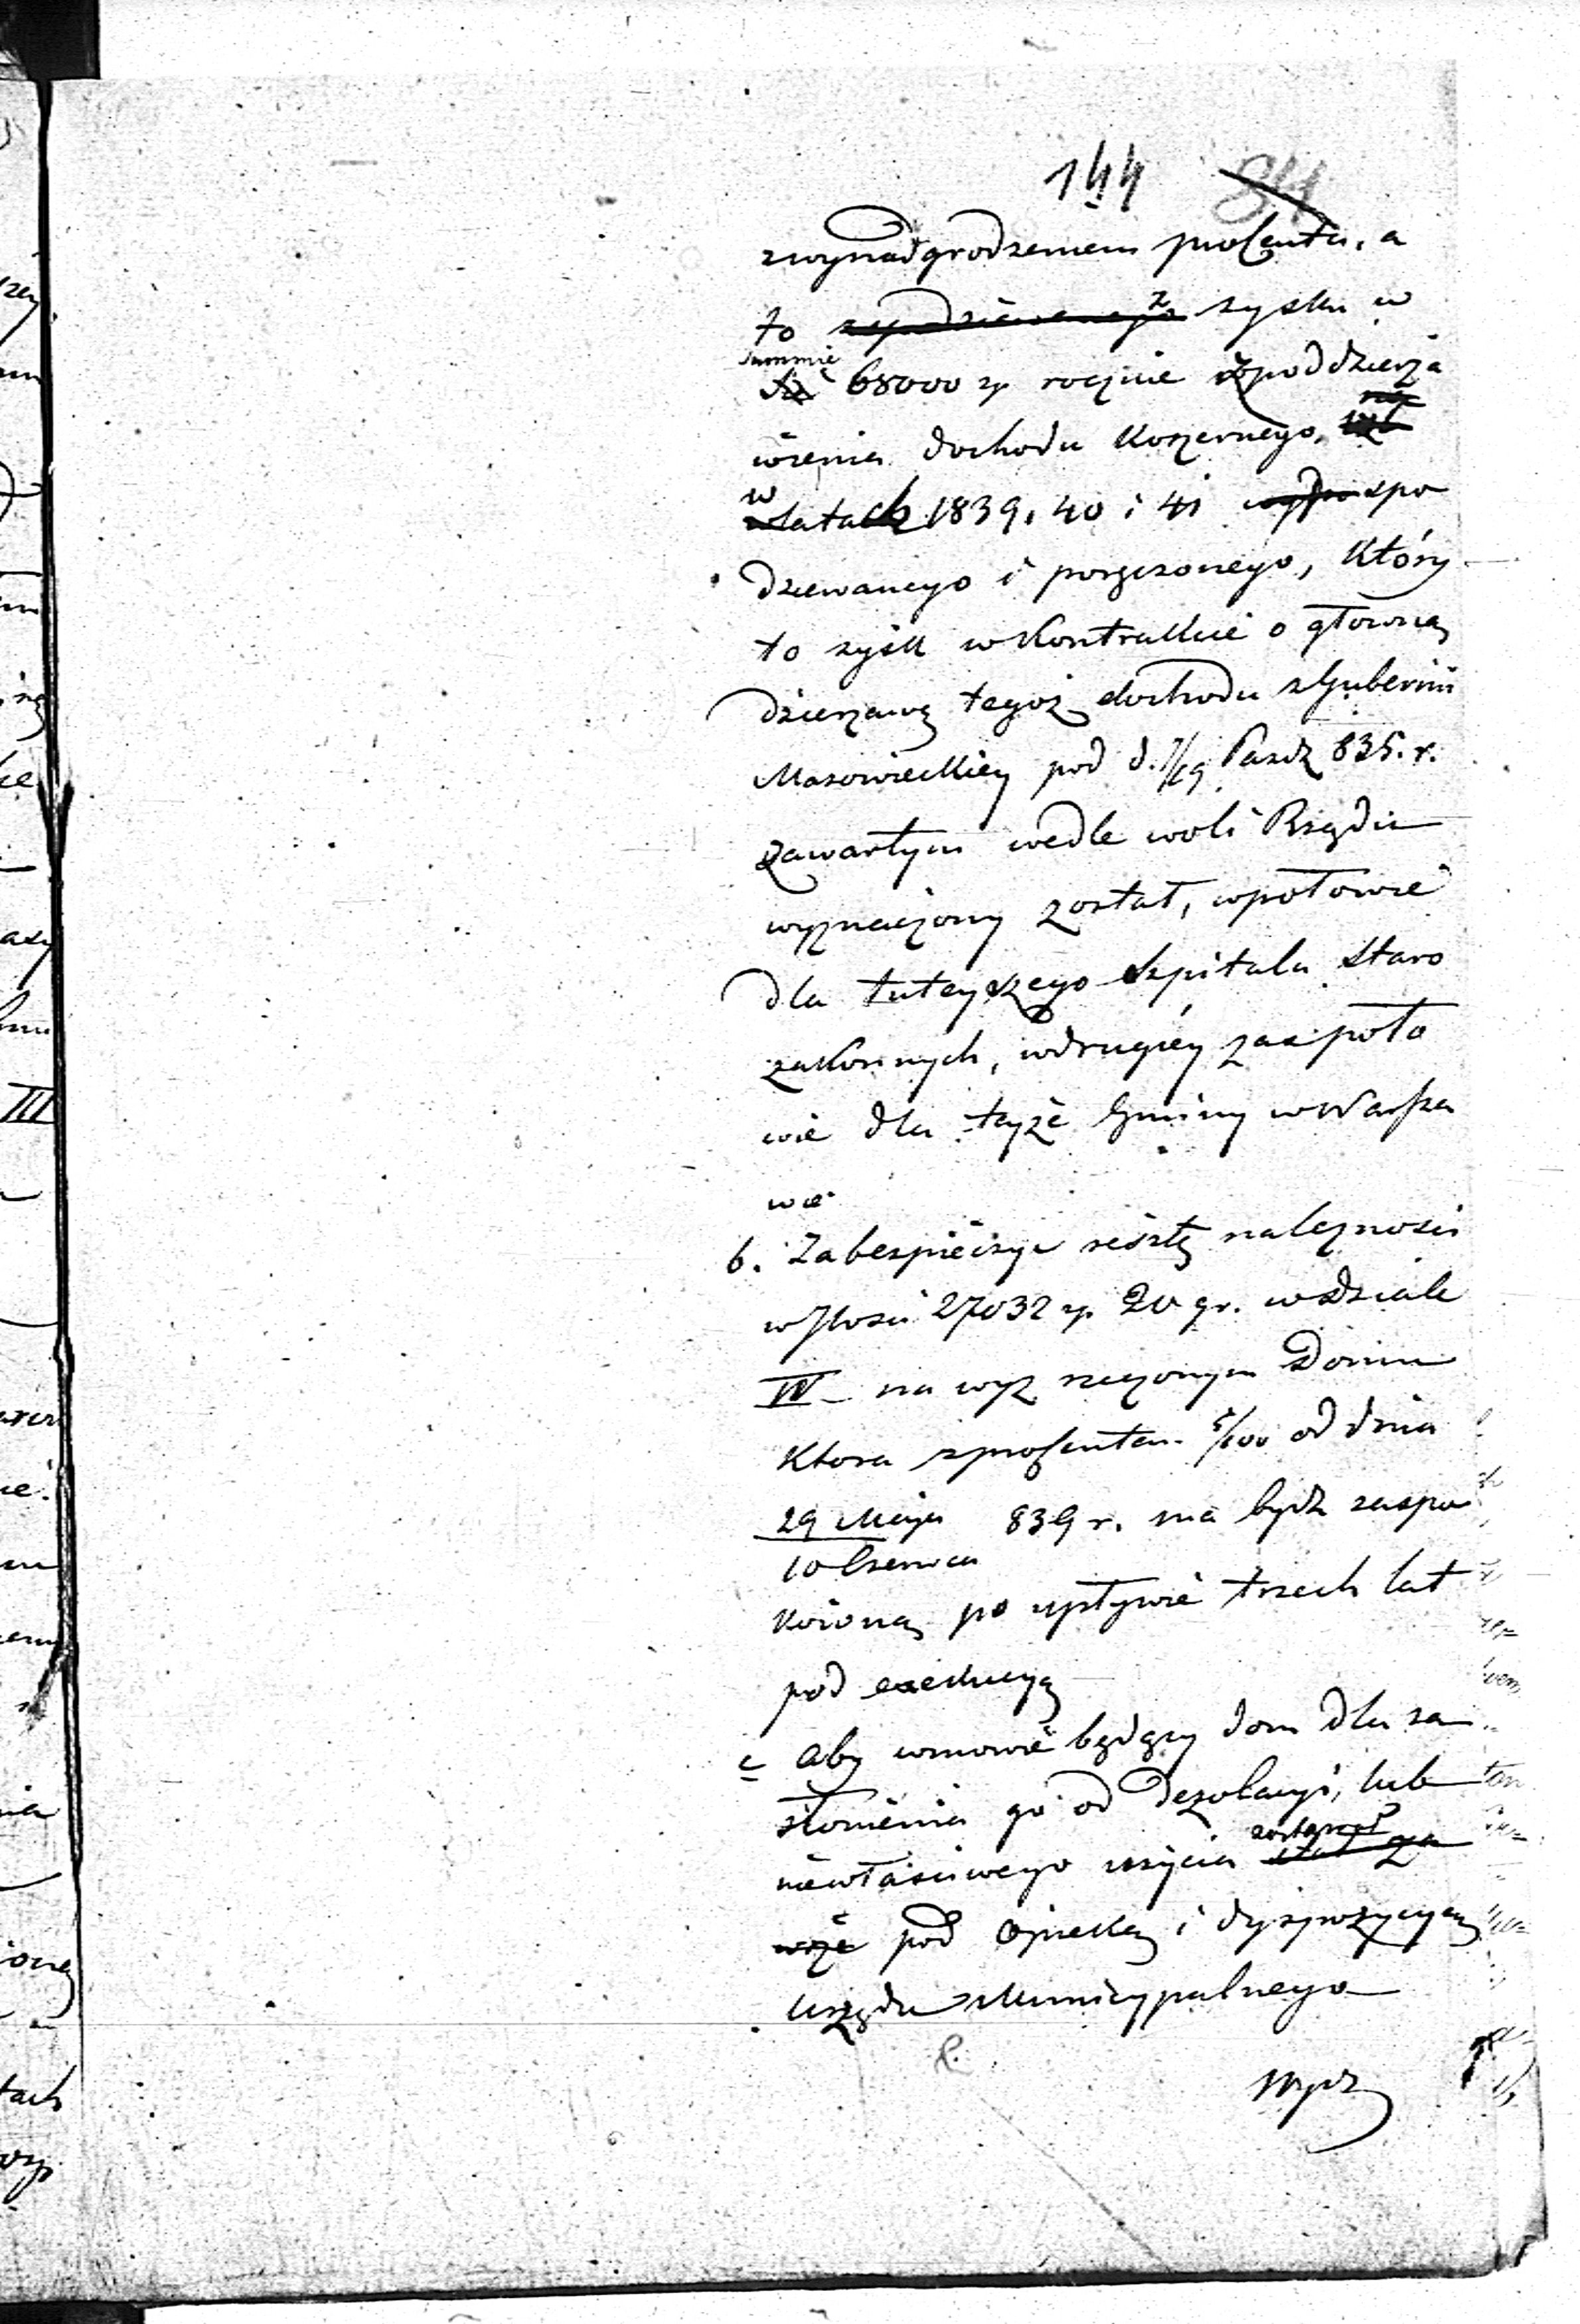 144 84
zwynadgrodzeniem procentu, a
to spodziewanego z zysku w
summie
68000 zp rocznie z poddzierża
wienia dochodu Koszernego,
w latach 1839. 40 i 41 spo
dziewanego i poręczonego, Który
to zysk w Kontrakcie o główną
dzierżawę tegoż dochodu z Gubernii
Mazowieckiey pod d. 7/19 Paźdz 835. r.
zawartym wedle woli Rządu
wyznaczony został, wpołowie
dla tuteyszego Szpitala Staro
zakonnych, wdrugiéy zaś poło
wie dla teyże Gminy w Warsza
wie
b. Zabespieczyć resztę należności
w Ilości 27032 zp 20 gr. wdziale
IV na wyż rzeczonym Domu
Ktora z procentem 5/100 od dnia
29 Maja 839 r. ma bydź zaspo
10 Czerwca
koioną po upływie trzech lat
pod exekucyą
c Aby wmowie będący dom dla za
słonienia go od Dezolacyi, lub
niewłaściwego użycia
zostawał
pod Opieką i dyspozycyą
Urzędu Municypalnego